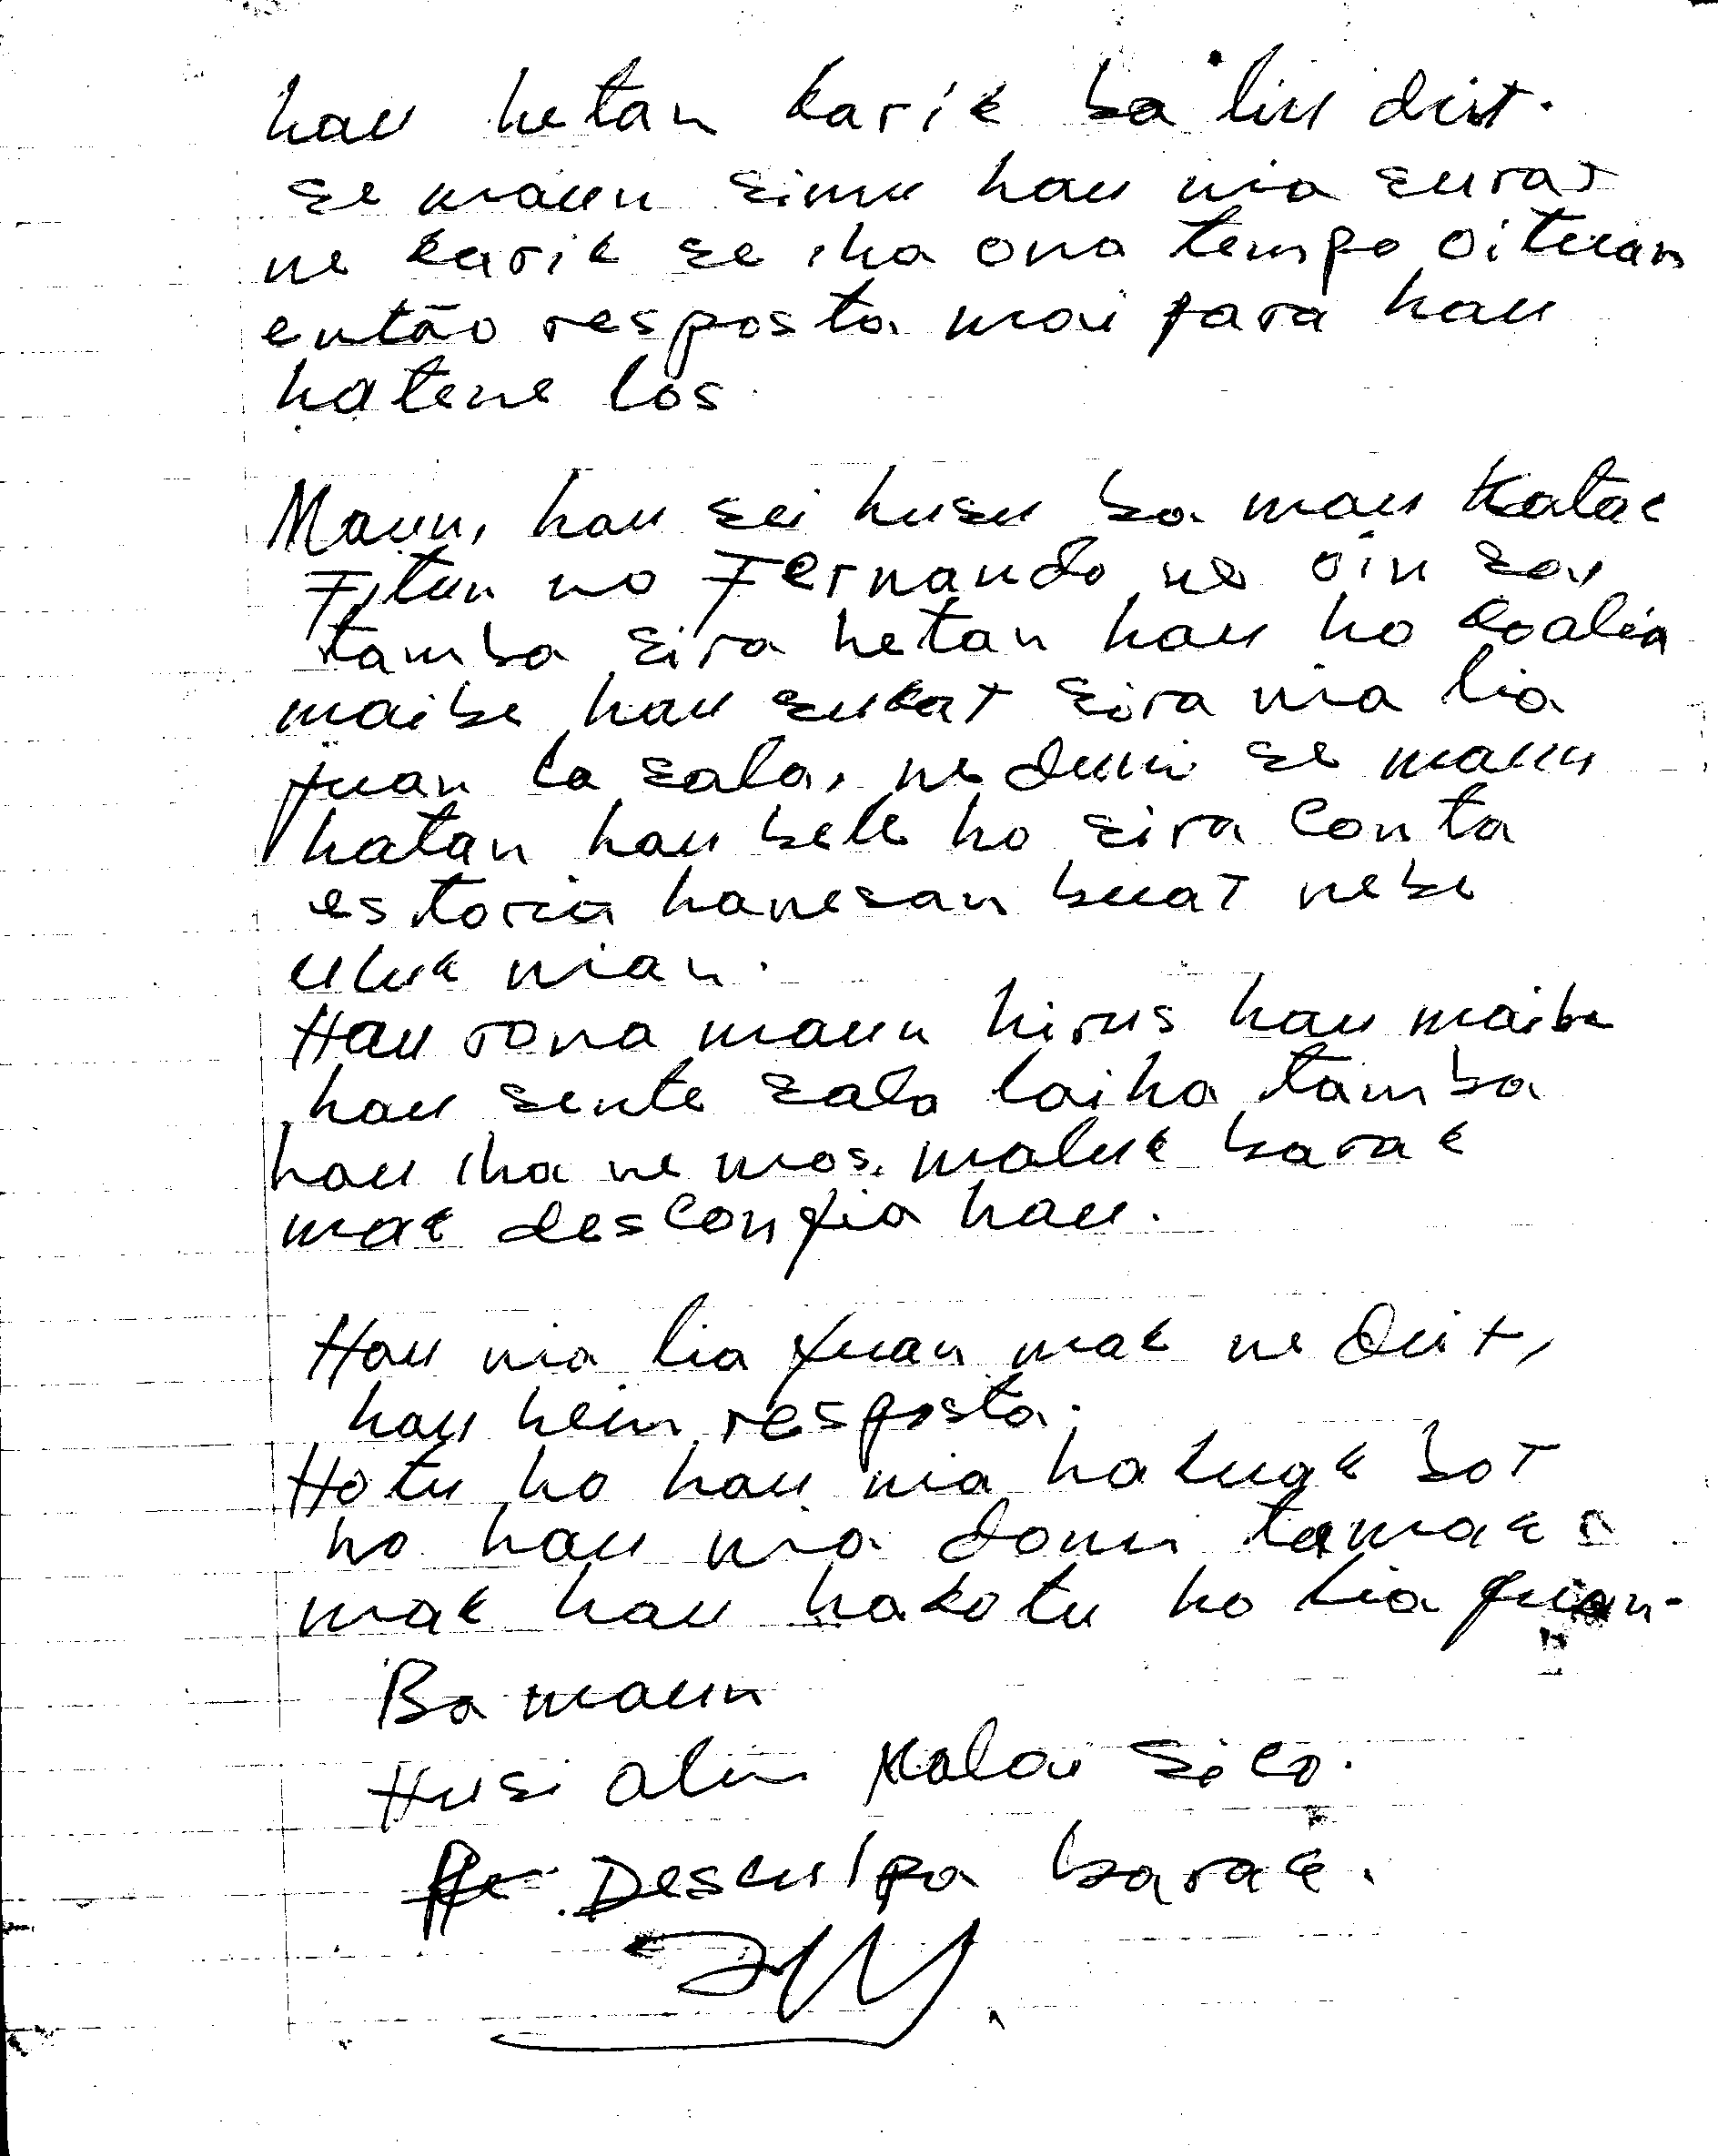 hau hetan karik ba liu deit.
se maun simu hau nia surat
ne karik se iha ona tempo oituan
então resposta mai para hau
hatene los.
Maun, hau sei husu ba mau katak
Fitun no Fernando ne oin sa,
tamba sira hetan hau ho koalia
maibe hau sukat sira nia lia
fuan la sala, ne duni se maun
hatan hau bele ho sira conta
estoria hanesan buat nebe
uluk nian.
Hau rona maun hirus hau maibe
hau sente sala laiha tamba
hau iha ne mos maluk barak
mak desconfia hau.
Hau nia lia fuan mak ne deit,
hau hein resposta.
Hotu ho hau nia hakuak bot
no hau nia domi tamak
mak hau hakotu ho lia fuan.
Ba maun
Husi alin Kalai Sico.
Desculpa barak.